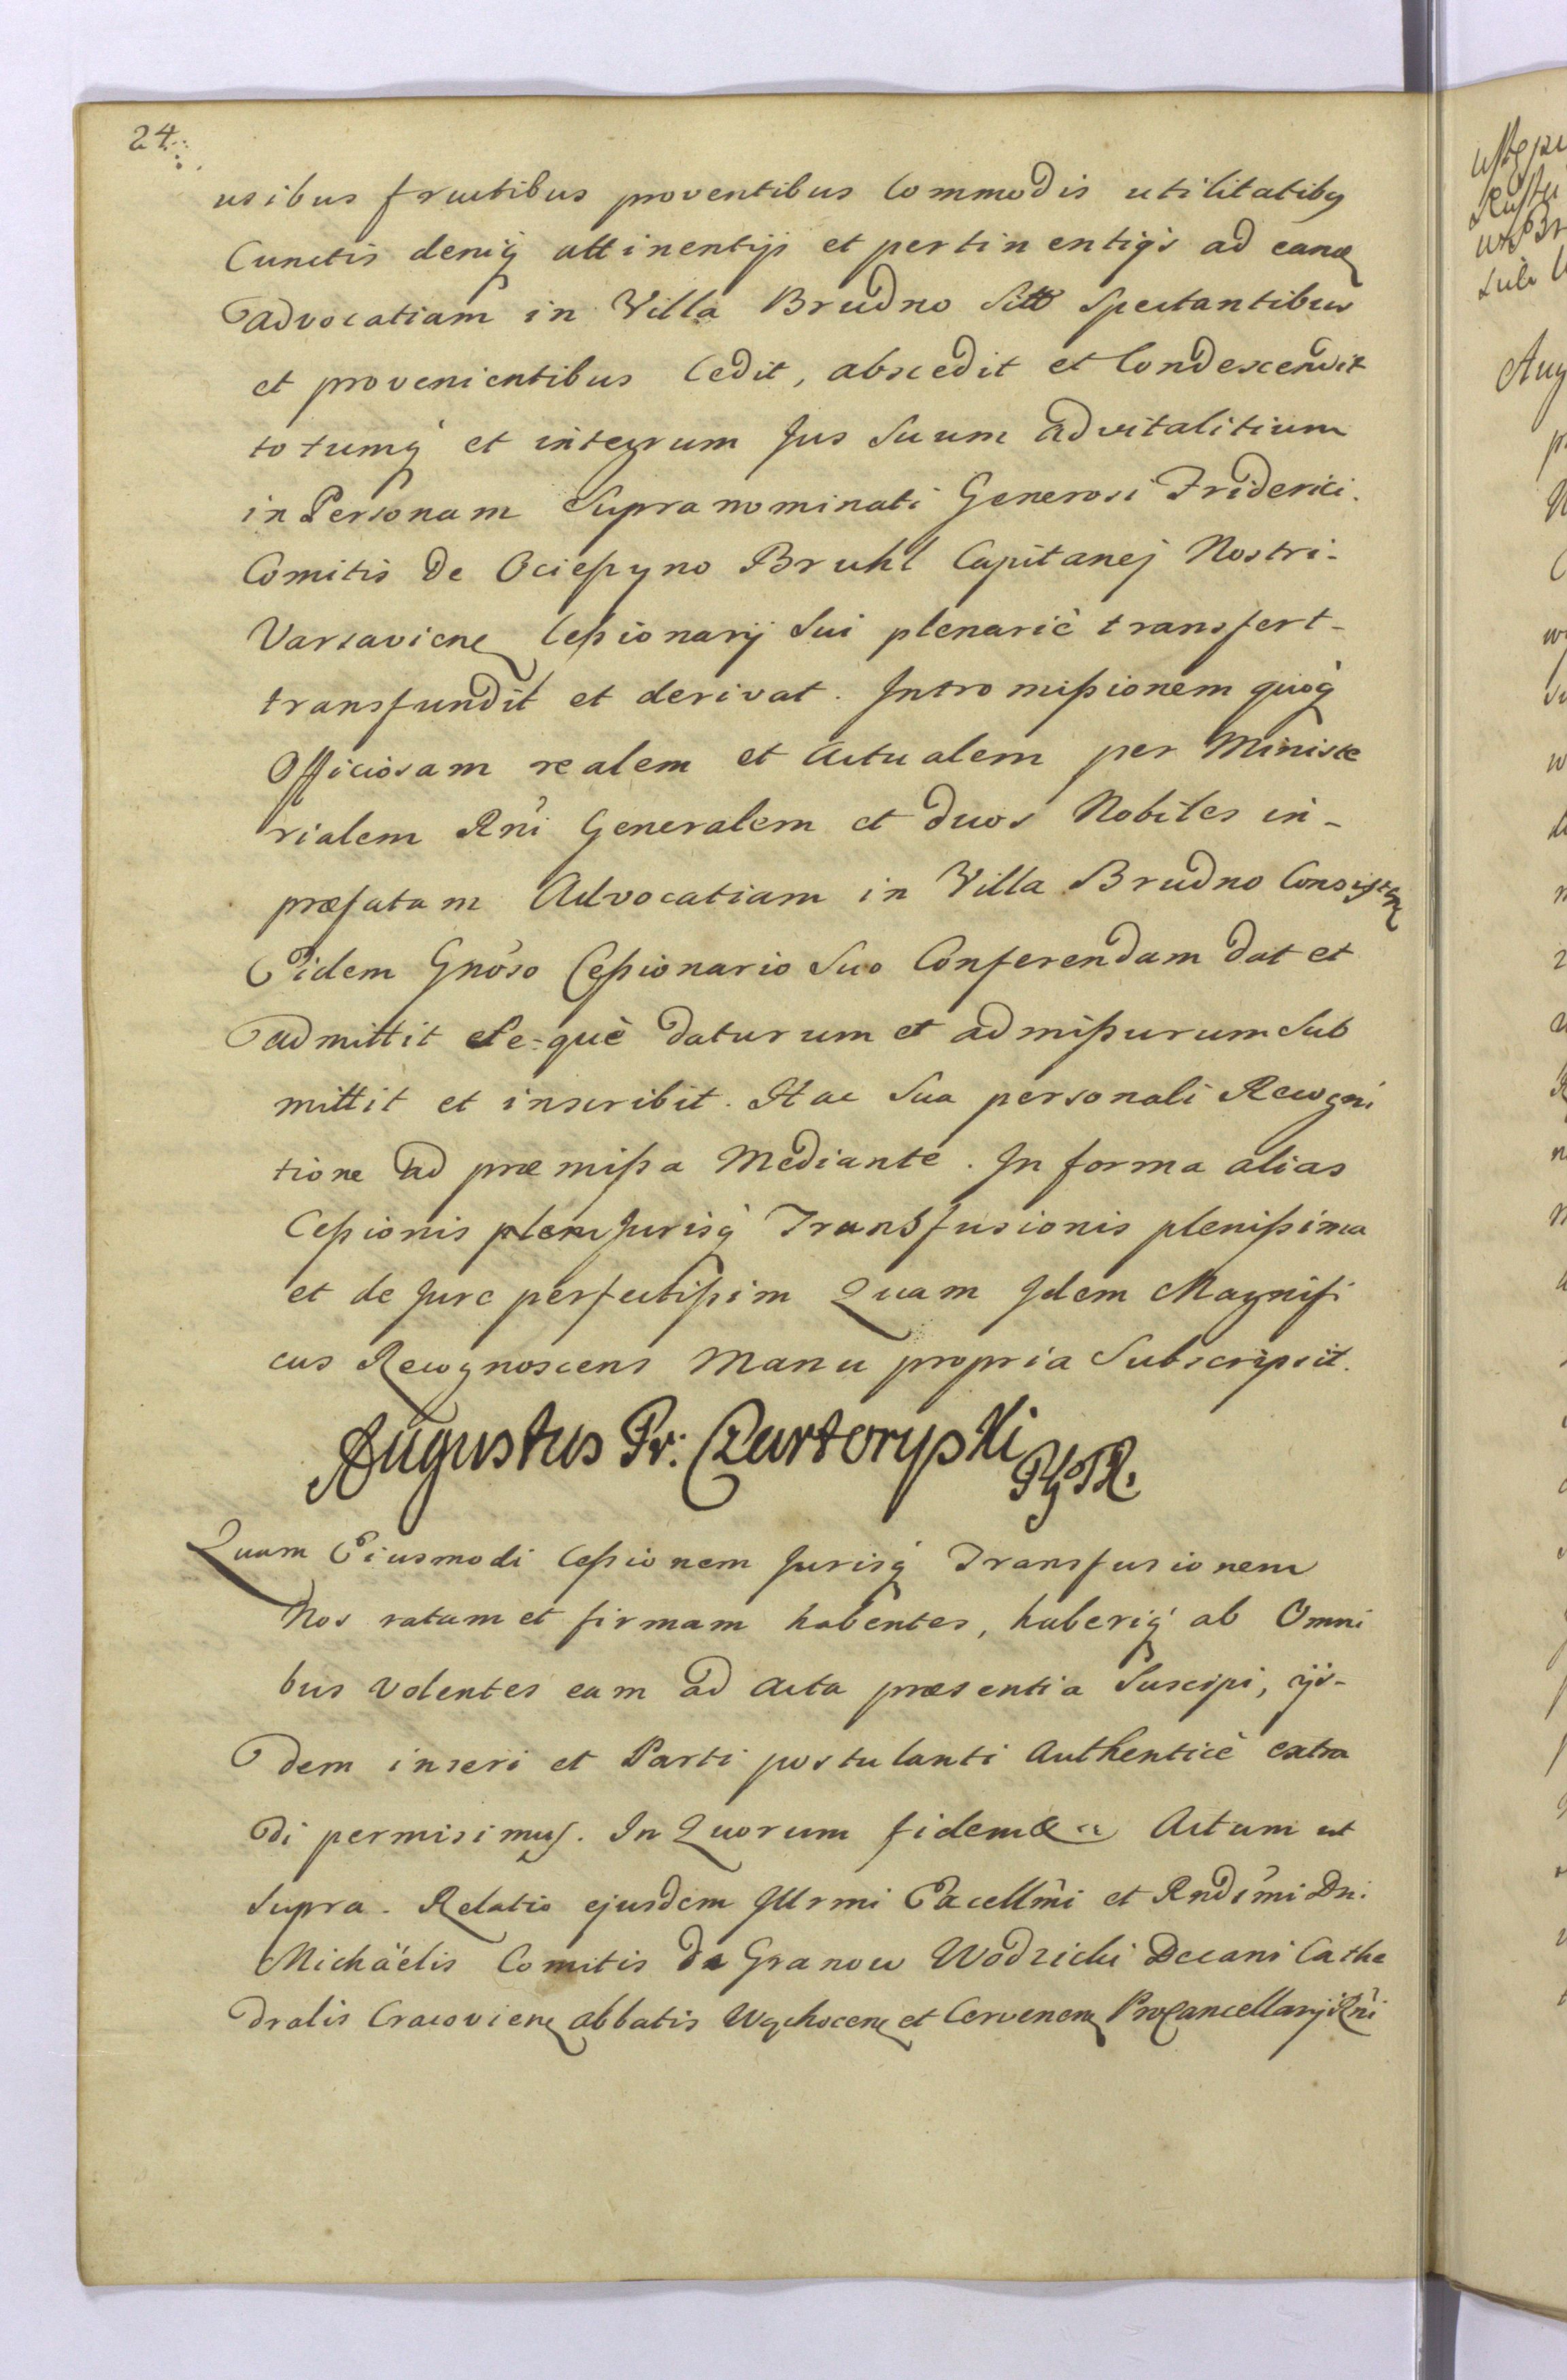 24.
usibus fructibus proventibus Commodis utilitatibq
Cunctis deniq attinentijs et pertinentigs ad eandẽ
advocatiam in Villa Brudno Sitto Spectantibus
et provenientibus Cedit, abscedit et Condescendit
totumq et integrum Jus Suum advitalitium
in Personam Supra nominati Generosi Friderici
Comitis de Ociessyno Bruhl Capitanej Nostri-
Varsaviens Cessionarij Sui plenariè transfert-
transfundit et derivat. Intromissionem quoq
Officiosam realem et Actualem per Ministe
rialem Rni Generalem et duos Nobiles in-
præfatam Advocatiam in Villa Brudno Consisten
Eidem Gnoso Cessionario Suo Conferendam dat et
admittit Se-què daturum et admissurum Sub
mittit et inscribit. Hac Sua personali Recogni
tione ad præmissa Mediante. In forma alias
Cessionis pleni Jurisq Transfusionis plenissima
et de Jure perfectissim Quam Idem Magnifi
cus Recognoscens Manu propria Subscripsit.
Augustus Pr: Czartoryski
Quam Eiusmodi Cessionem Jurisq Transfusionem
Nos ratam et firmam habentes, haberiq ab Omni
bus volentes eam ad Acta præsentia Suscipi, ijs-
dem inseri et Parti postulanti Authenticè extra
di permisimus. In Quorum fidem &cc Actum ut
Supra. Relatio ejusdem Jllrmi Excellmi et Rndsmi Dni
Michäelis Comitis de Granow Wodzicki Decani Cathe
dralis Cracoviens abbatis Wąchocens et Cervenens ProCancellarij Rni